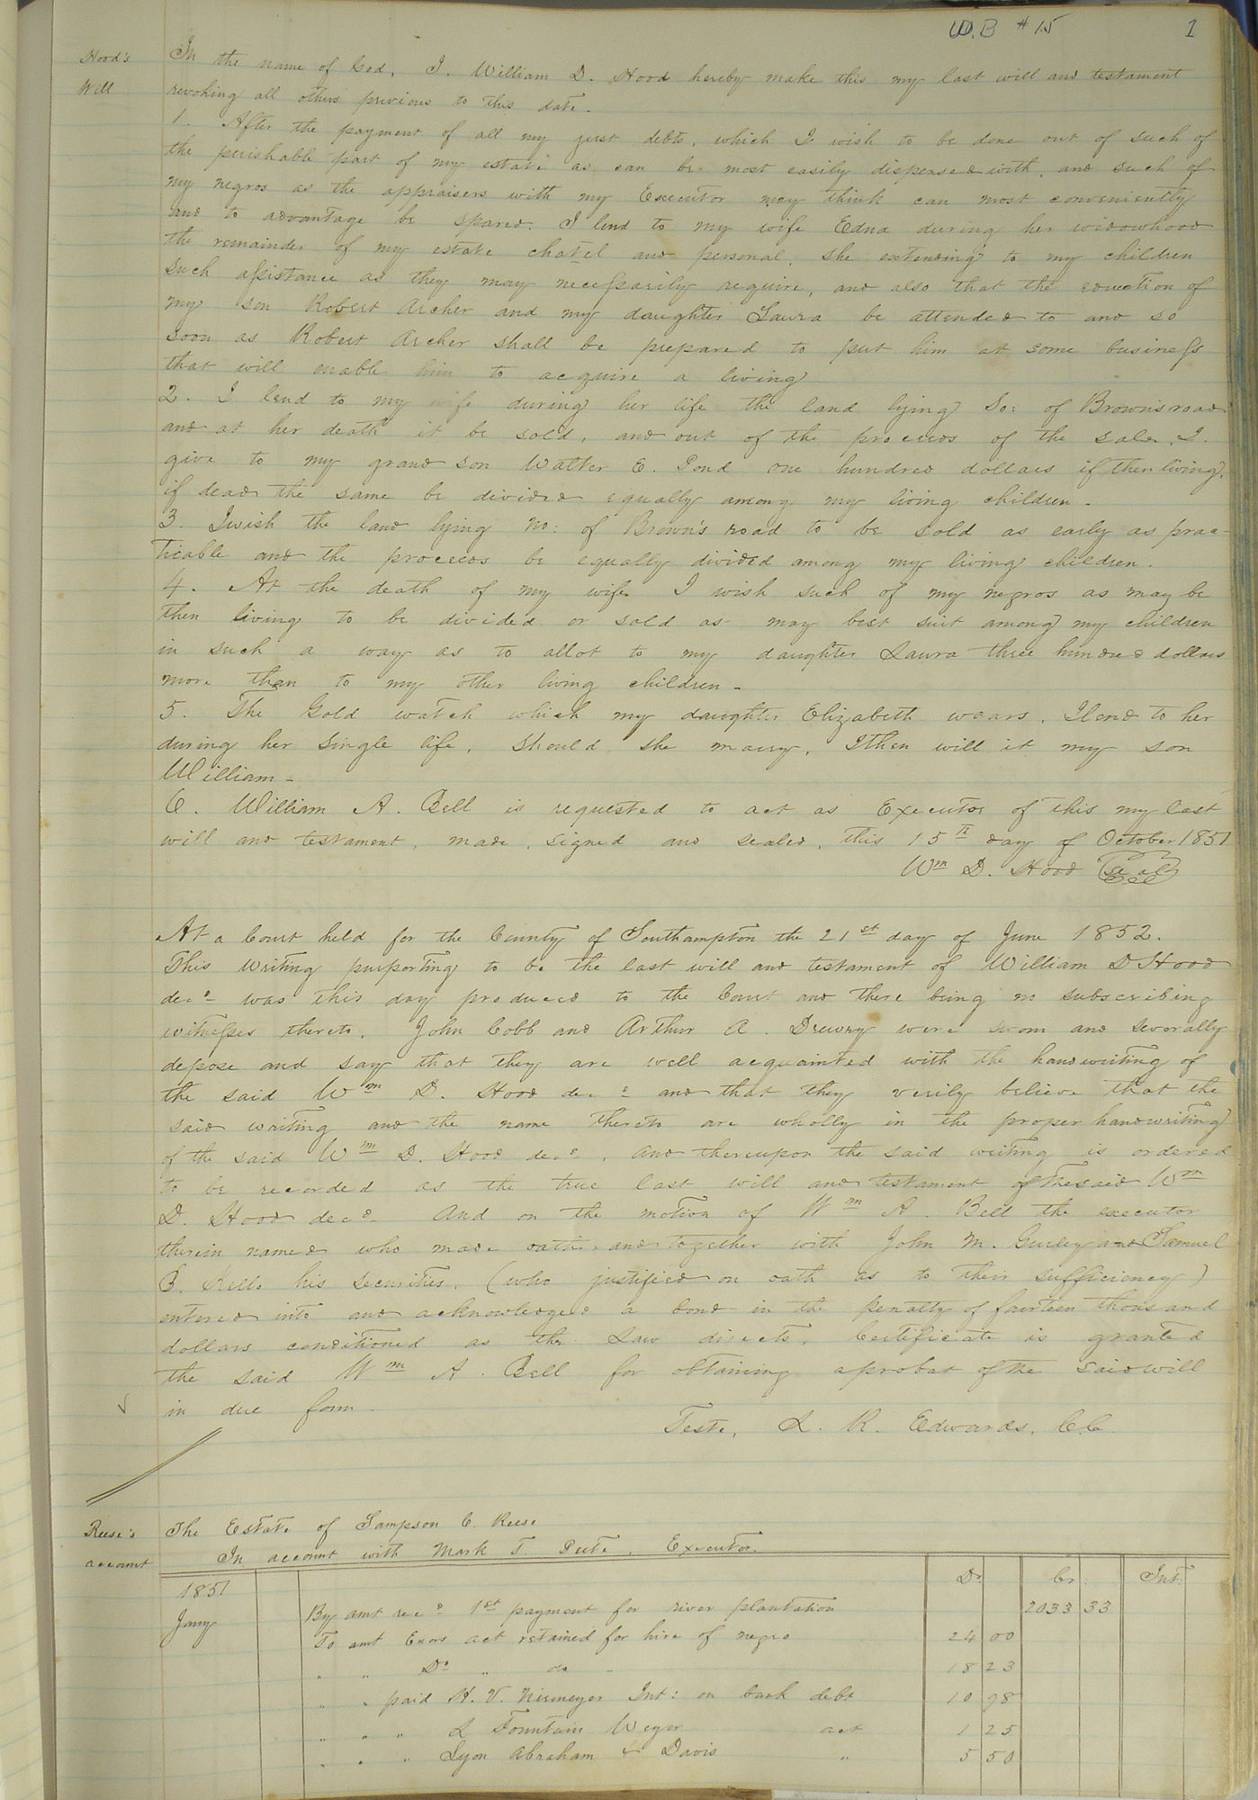 W.B #15 1
Hood's
Will
In the name of God, I. William D. Hood hereby make this my last will and testament
revoking all others previous to this date.
1. After the payment of all my just debts, which I wish to be done out of such of
the perishable part of my estate as can be most easily dispensed with, and such of
my negros as the appraisers with my Executor may think can most conveniently
and to advantage be spared. I lend to my wife Edna during her widowhood
the remainder of my estate chatel and personal, she extending to my children
such assistance as they may necessarily require, and also that the education of
my son Robert Archer and my daughter Laura be attended to and so
soon as Robert Archer shall be prepared to put him at some business
that will enable him to acquire a living
2. I lend to my wife during her life the land lying So: of Brown's road
and at her death it be sold, and out of the proceeds of the sale, I.
give to my grand son Walter E. Pond one hundred dollars if then living,
if dead the same be divided equally among my living children.
3. I wish the land lying No: of Brown's road to be sold as early as prac-
ticable and the proceeds be equally divided among my living children.
4. At the death of my wife I wish such of my negros as may be
then living to be divided or sold as may best suit among my children
in such a way as to allot to my daughter Laura three hundred dollars
more than to my other living children.
5. The Gold watch which my daughter Elizabeth wears, I lend to her
during her single life, should she marry, I then will it my son
William.
6. William A. Bell is requested to act as Executor of this my last
will and testament, made, signed and sealed, this 15th day of October 1851
Wm D. Hood Seal
At a Court held for the County of Southampton the 21st day of June 1852.
This writing purporting to be the last will and testament of William D Hood
decd was this day produced to the Court and there being no subscribing
witnesses thereto, John Cobb and Arthur A. Drewry were sworn and severally
depose and say that they are well acquainted with the handwriting of
the said Wm D. Hood decd and that they verily believe that the
said writing and the name thereto are wholly in the proper handwriting
of the said Wm D. Hood decd, and thereupon the said writing is ordered
to be recorded as the true last will and testament of the said Wm
D. Hood decd. And on the motion of Wm A. Bell the executor
therein named who made oath and together with John M. Gurley and Samuel
B. Kello his securities, (who justified on oath as to their sufficiency)
entered into and acknowledged a bond in the penalty of fourteen thousand
dollars conditioned as the Law directs, Certificate is granted
the said Wm A. Bell for obtaining a probat of the said will
in due form.
Teste, L. R. Edwards, C.C.
Reese's
account
The Estate of Sampson C Reese
In account with Mark T. Pete, Executor.
Dr. Cr. Int.
1851
Jany By amt recd 1st payment for river plantation 2033 33
To amt Exors act retained for hire of negro 24 00
" " Do " do 18 23
" " paid H. V. Niemeyer Int: on bank debt 10 98
" " " L Fountain Weyer act 1 25
" " " Lyon Abraham & Davis " 5 50